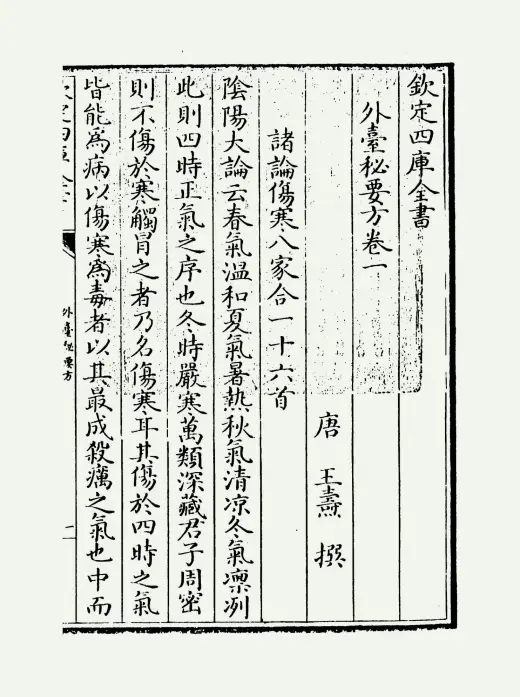 欽定四庫全書
外臺秘要方卷一
唐 王燾 撰
諸論傷寒八家合一十六首
陰陽大論云春氣溫和夏氣暑熱秋氣清凉冬氣凛冽
此則四時正氣之序也冬時嚴寒萬類深藏君子周密
則不傷於寒觸冒之者乃名傷寒耳其傷於四時之氣
皆能為病以傷寒為毒者以其最成殺癘之氣也中而
外臺秘要方